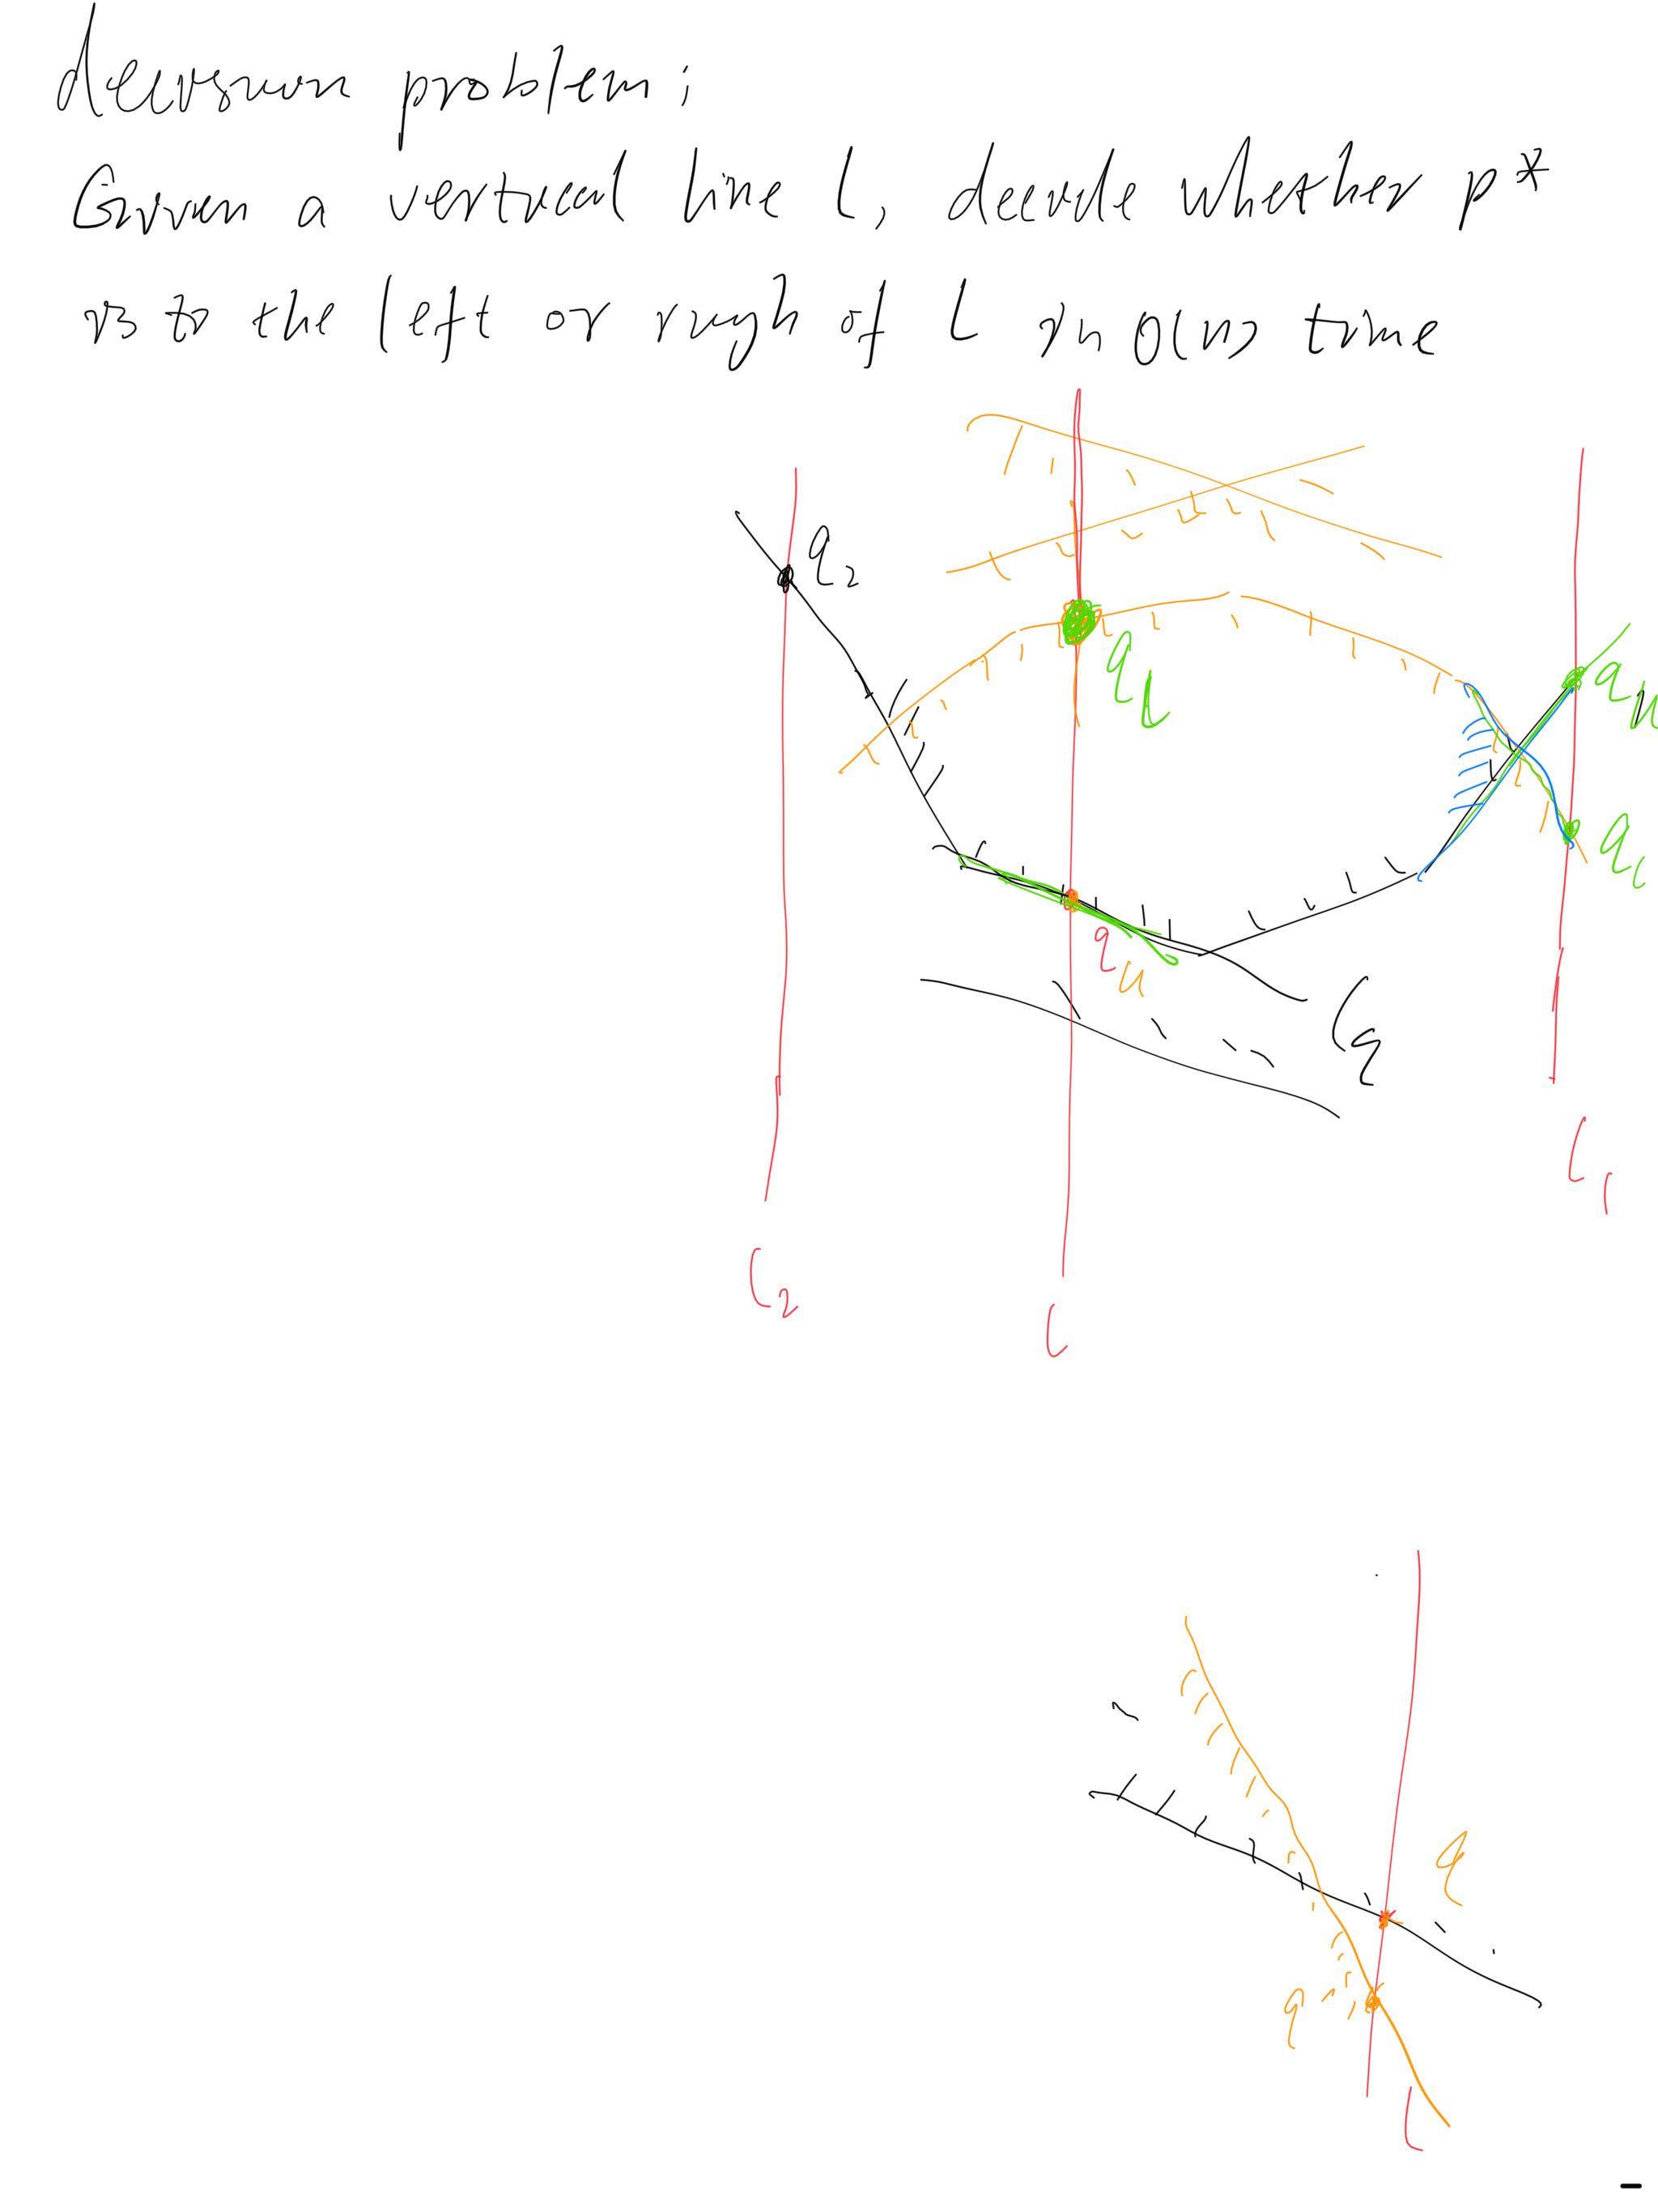 decision problem:
Given a vertical line L, decide whether p*
is to the left or right of L in O(n) time
q2
ql
qu
ql
qu
Lq
L1
L2
L
q
q
L